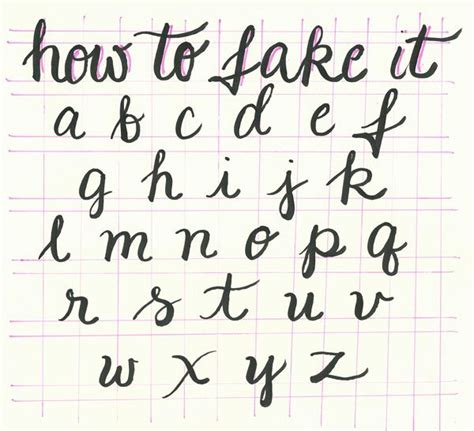 how to fake it
a b c d e f
g h i j k
l m n o p q
r s t u v
w x y z